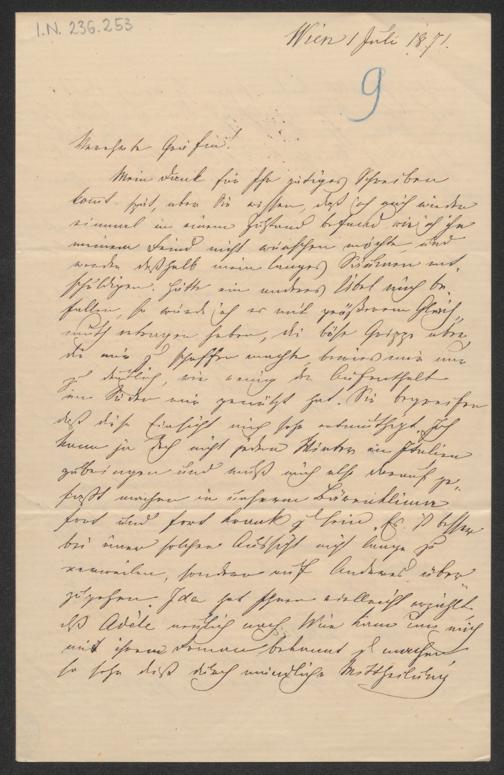 I.N. 236.253
Wien 1 Juli 1871.
9
Verehrte Gräfin!
Mein Dank für Ihr gütiges Schreiben
komt spät, aber Sie wissen, daß ich mich wieder
einmal in einem Zustand befand, wie ich ihn
meinem Feind nicht wünschen möchte und
werden deßhalb mein langes Säumen ent-
schuldigen. Hätte ein anderes Übel mich be-
fallen, so würde ich es mit größerem Gleich-
muth ertragen haben, die böse Grippe aber
die mir zu schaffen machte bewies mir nur
zu deutlich, wie wenig der Aufenthalt
im Süden mir genützt hat. Sie begreifen
daß diese Einsicht mich sehr entmuthigt. Ich
kann ja doch nicht jeden Winter in Italien
zubringen und muß mich also darauf ge-
faßt machen in unserem
fort und fort krank zu sein. Es ist besser
bei einer solchen Aussicht nicht lange zu
verweilen, sondern auf Anderes über
zugehen. Ida hat Ihnen vielleicht erzählt
daß Adèle neulich nach Wien kam um mich
mit ihrem Roman bekannt zu machen
so sehr dieß durch mündliche Mittheilung